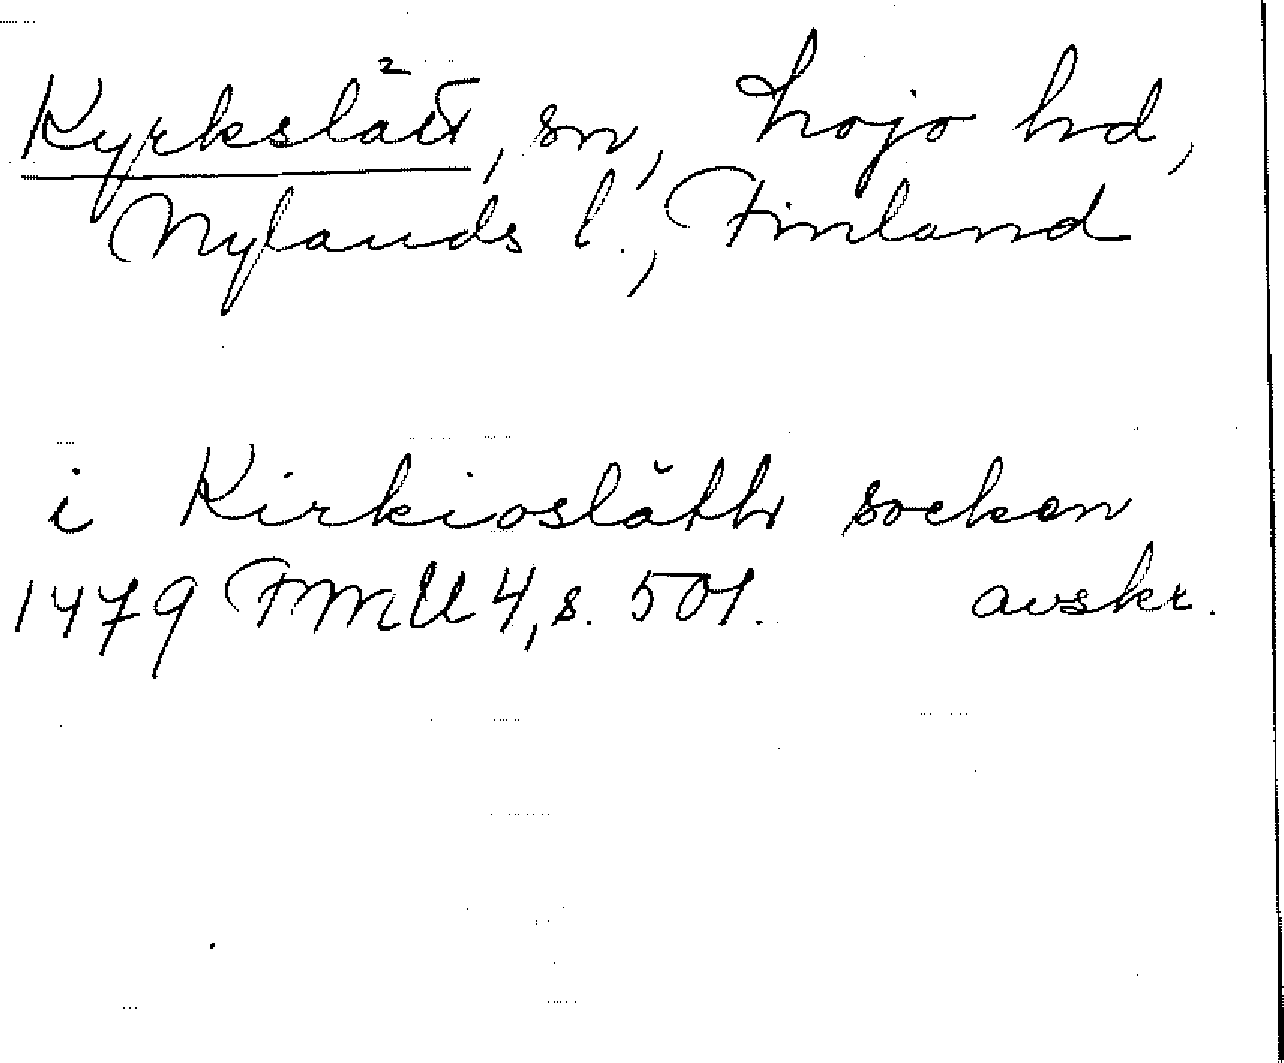 Kyrkslätt, sn, Lojo hd,
Nylands l., Finland
i Kirkioslätth socken
1479 FMU 4, s. 501. avskr.